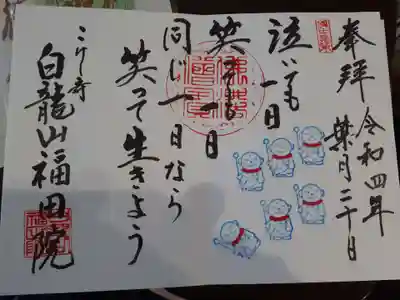 奉拝 令和四年
葉月二十日
泣いても一日
笑っても一日
同じ一日なら
笑って生きよう
こけし寺
白龍山福田院
佛法僧寶